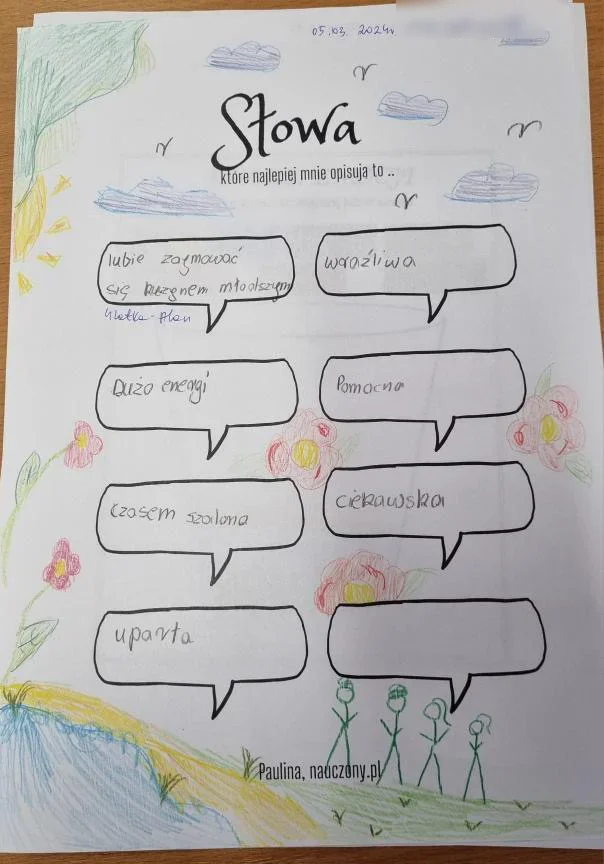 05.03. 2024r.
Słowa
które najlepiej mnie opisują to ..
lubie zajmować
się kuzynem młodszym
wraźliwa
Dużo energi
Pomocna
czasem szalona
ciekawska
uparta
Paulina, nauczony.pl